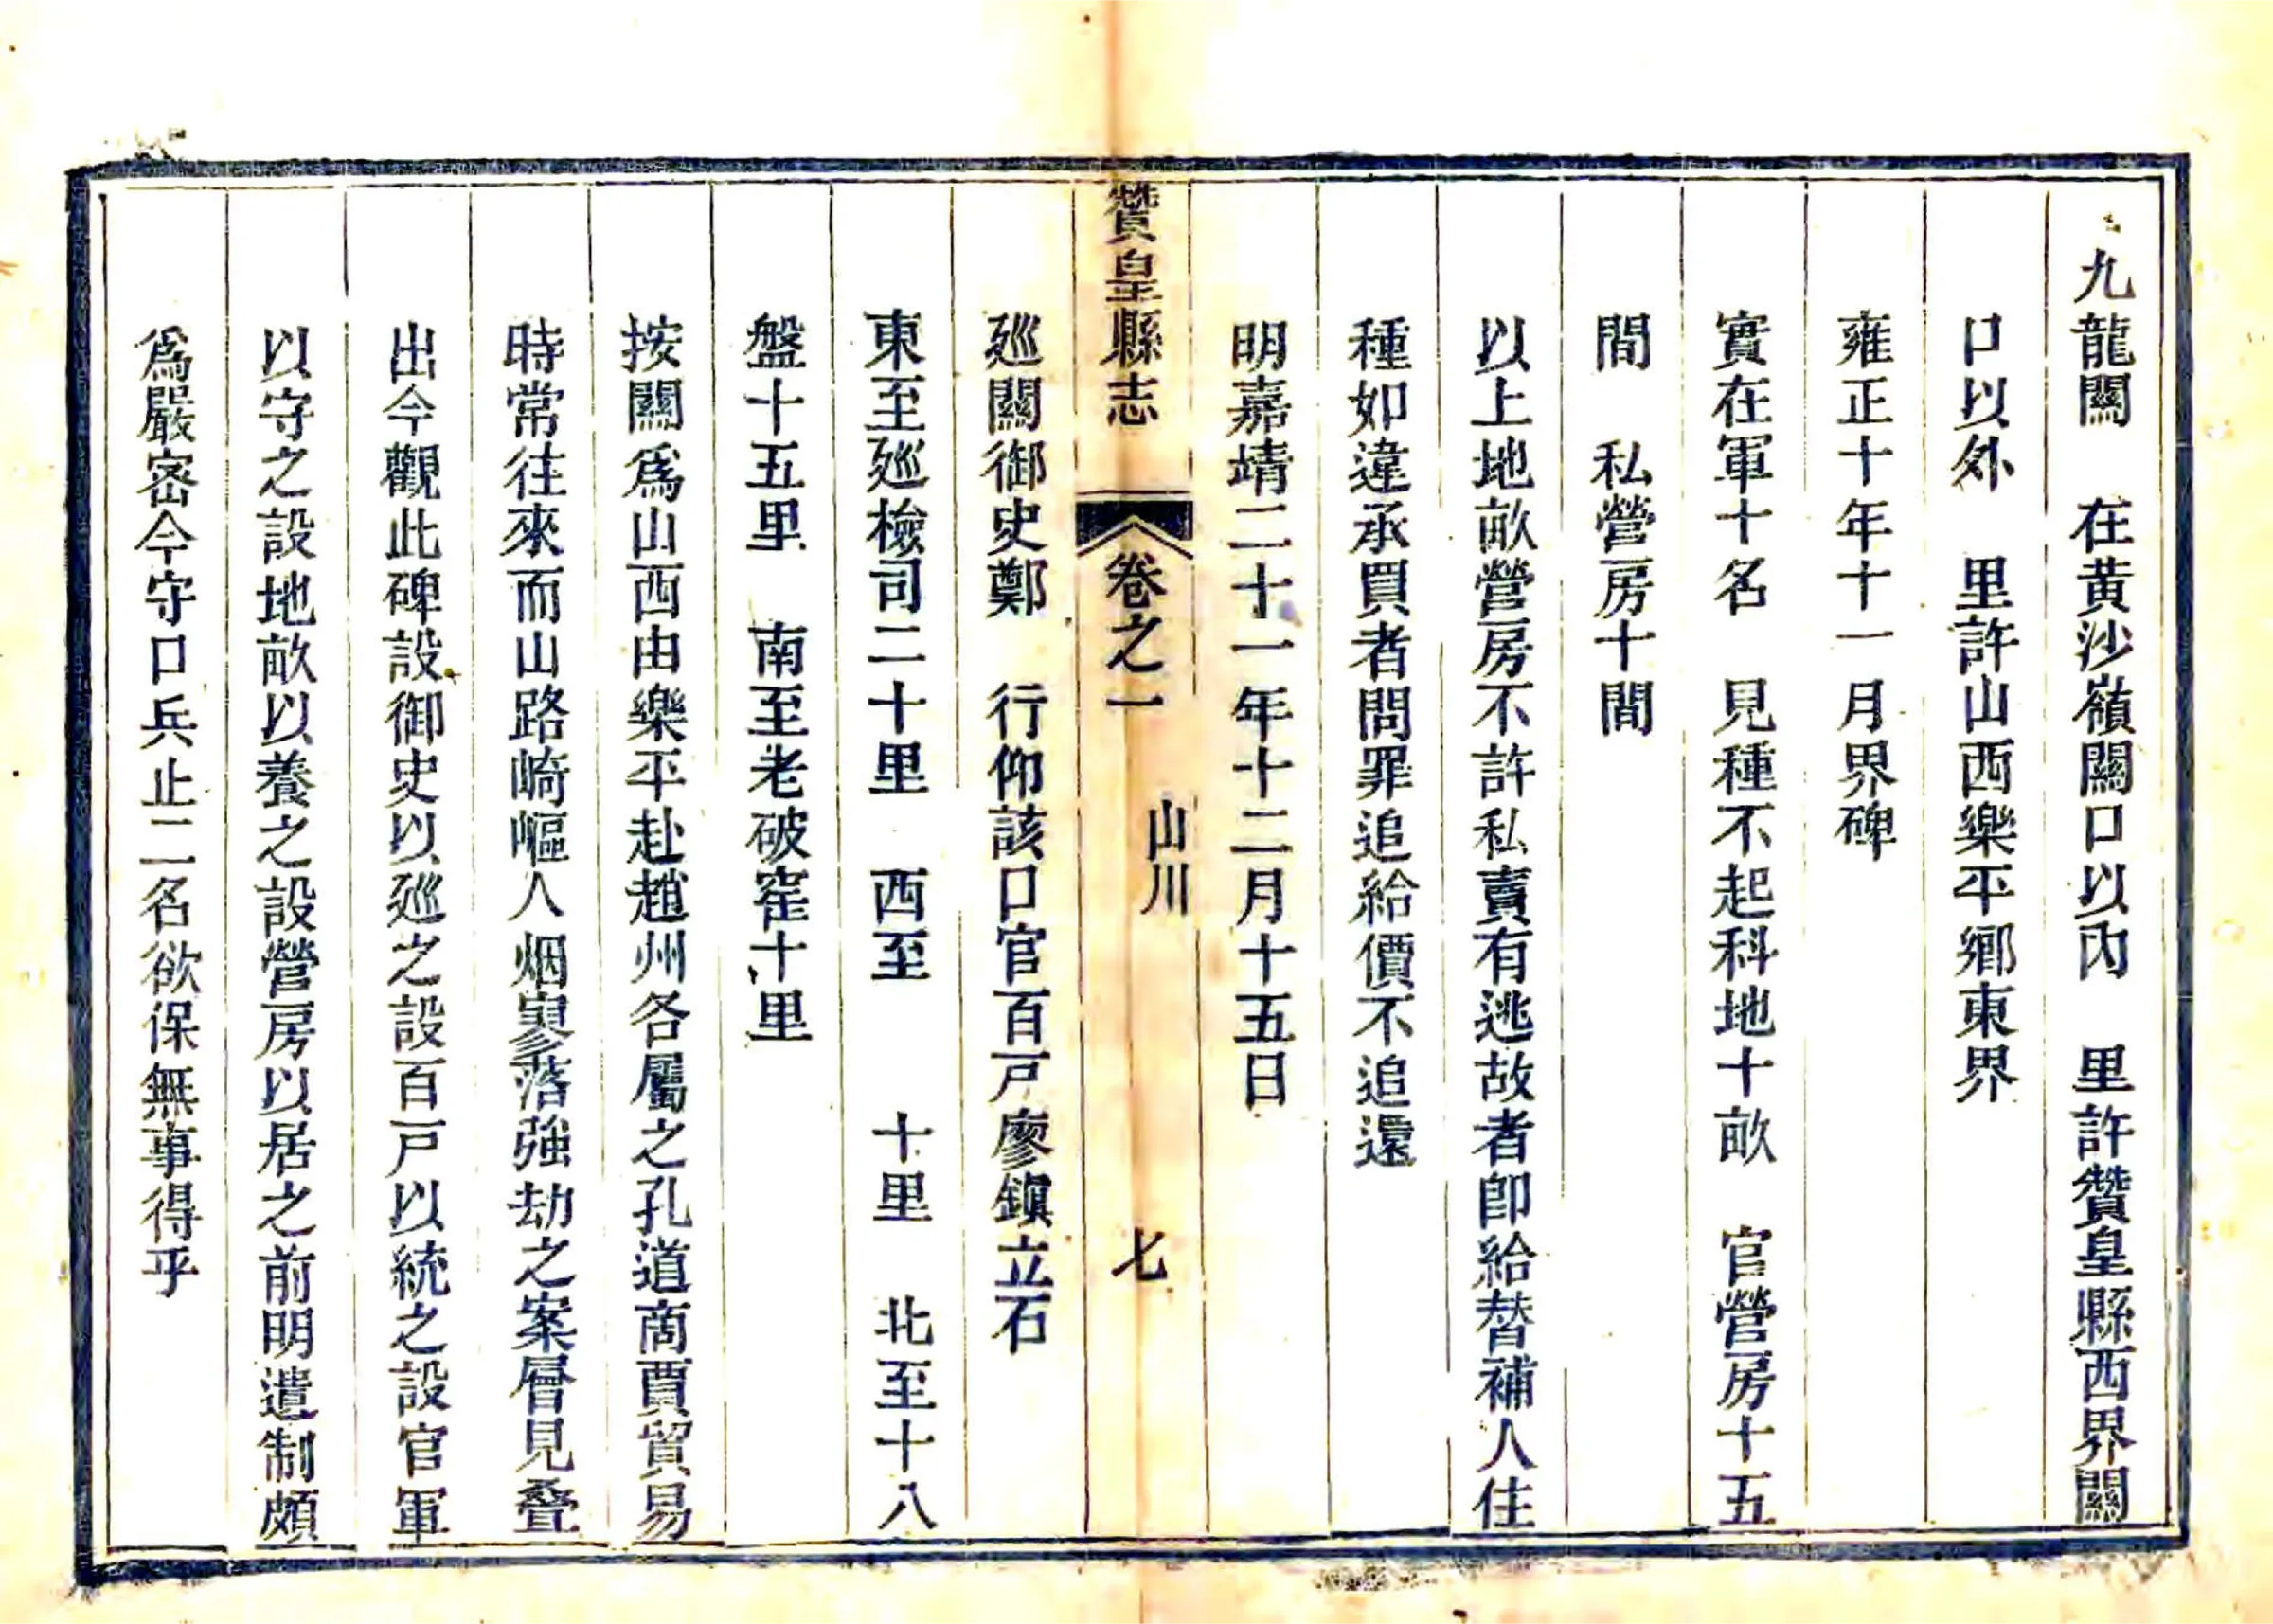 九龍關　在黄沙嶺關口以内　里許贊皇縣西界關
口以外　里許山西樂平鄉東界
雍正十年十一月界碑
實在軍十名　見種不起科地十畝　官營房十五
間　私營房十間
以上地畝營房不許私賣有逃故者卽給替補人住
種如違承買者問罪追給價不追還
明嘉靖二十一年十二月十五日
贊皇縣志　卷之一　山川　七
廵關御史鄭　行仰該口官百戸廖鎮立石
東至廵檢司二十里　西至　十里　北至十八
盤十五里　南至老破窑十里
按關爲山西由樂平赴趙州各屬之孔道商賈貿易
時常往來而山路崎嶇人烟寥落強劫之案層見叠
出今觀此碑設御史以廵之設百戸以統之設官軍
以守之設地畝以養之設營房以居之前明遣制頗
爲嚴密今守口兵止二名欲保無事得乎